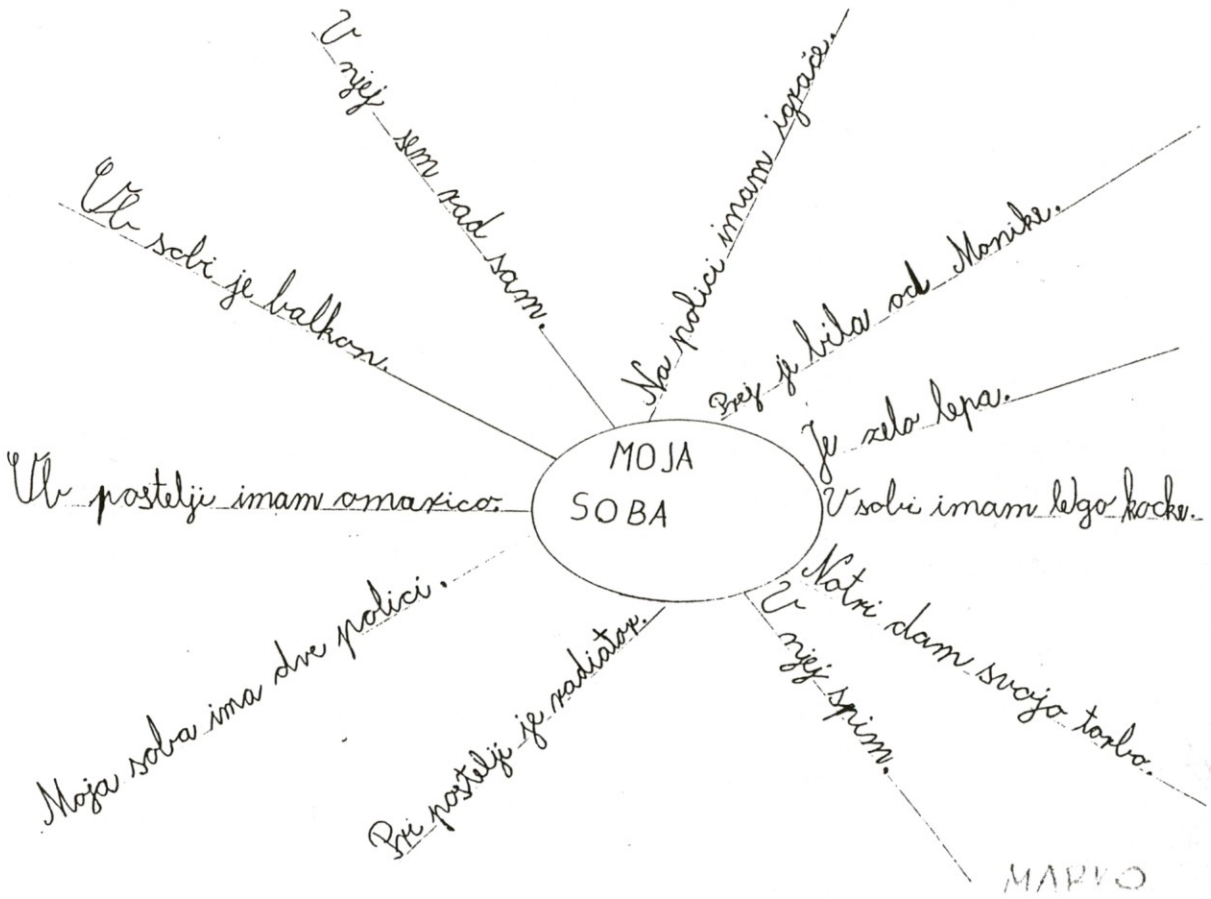 MOJA
SOBA
V njej sem rad sam.
Na polici imam igrače.
Prej je bila od Monike.
Je zelo lepa.
V sobi imam lego kocke.
Notri dam svojo torbo.
V njej spim.
Pri postelji je radiator.
Moja soba ima dve polici.
Ob postelji imam omarico.
Ob sobi je balkon.
MARKO